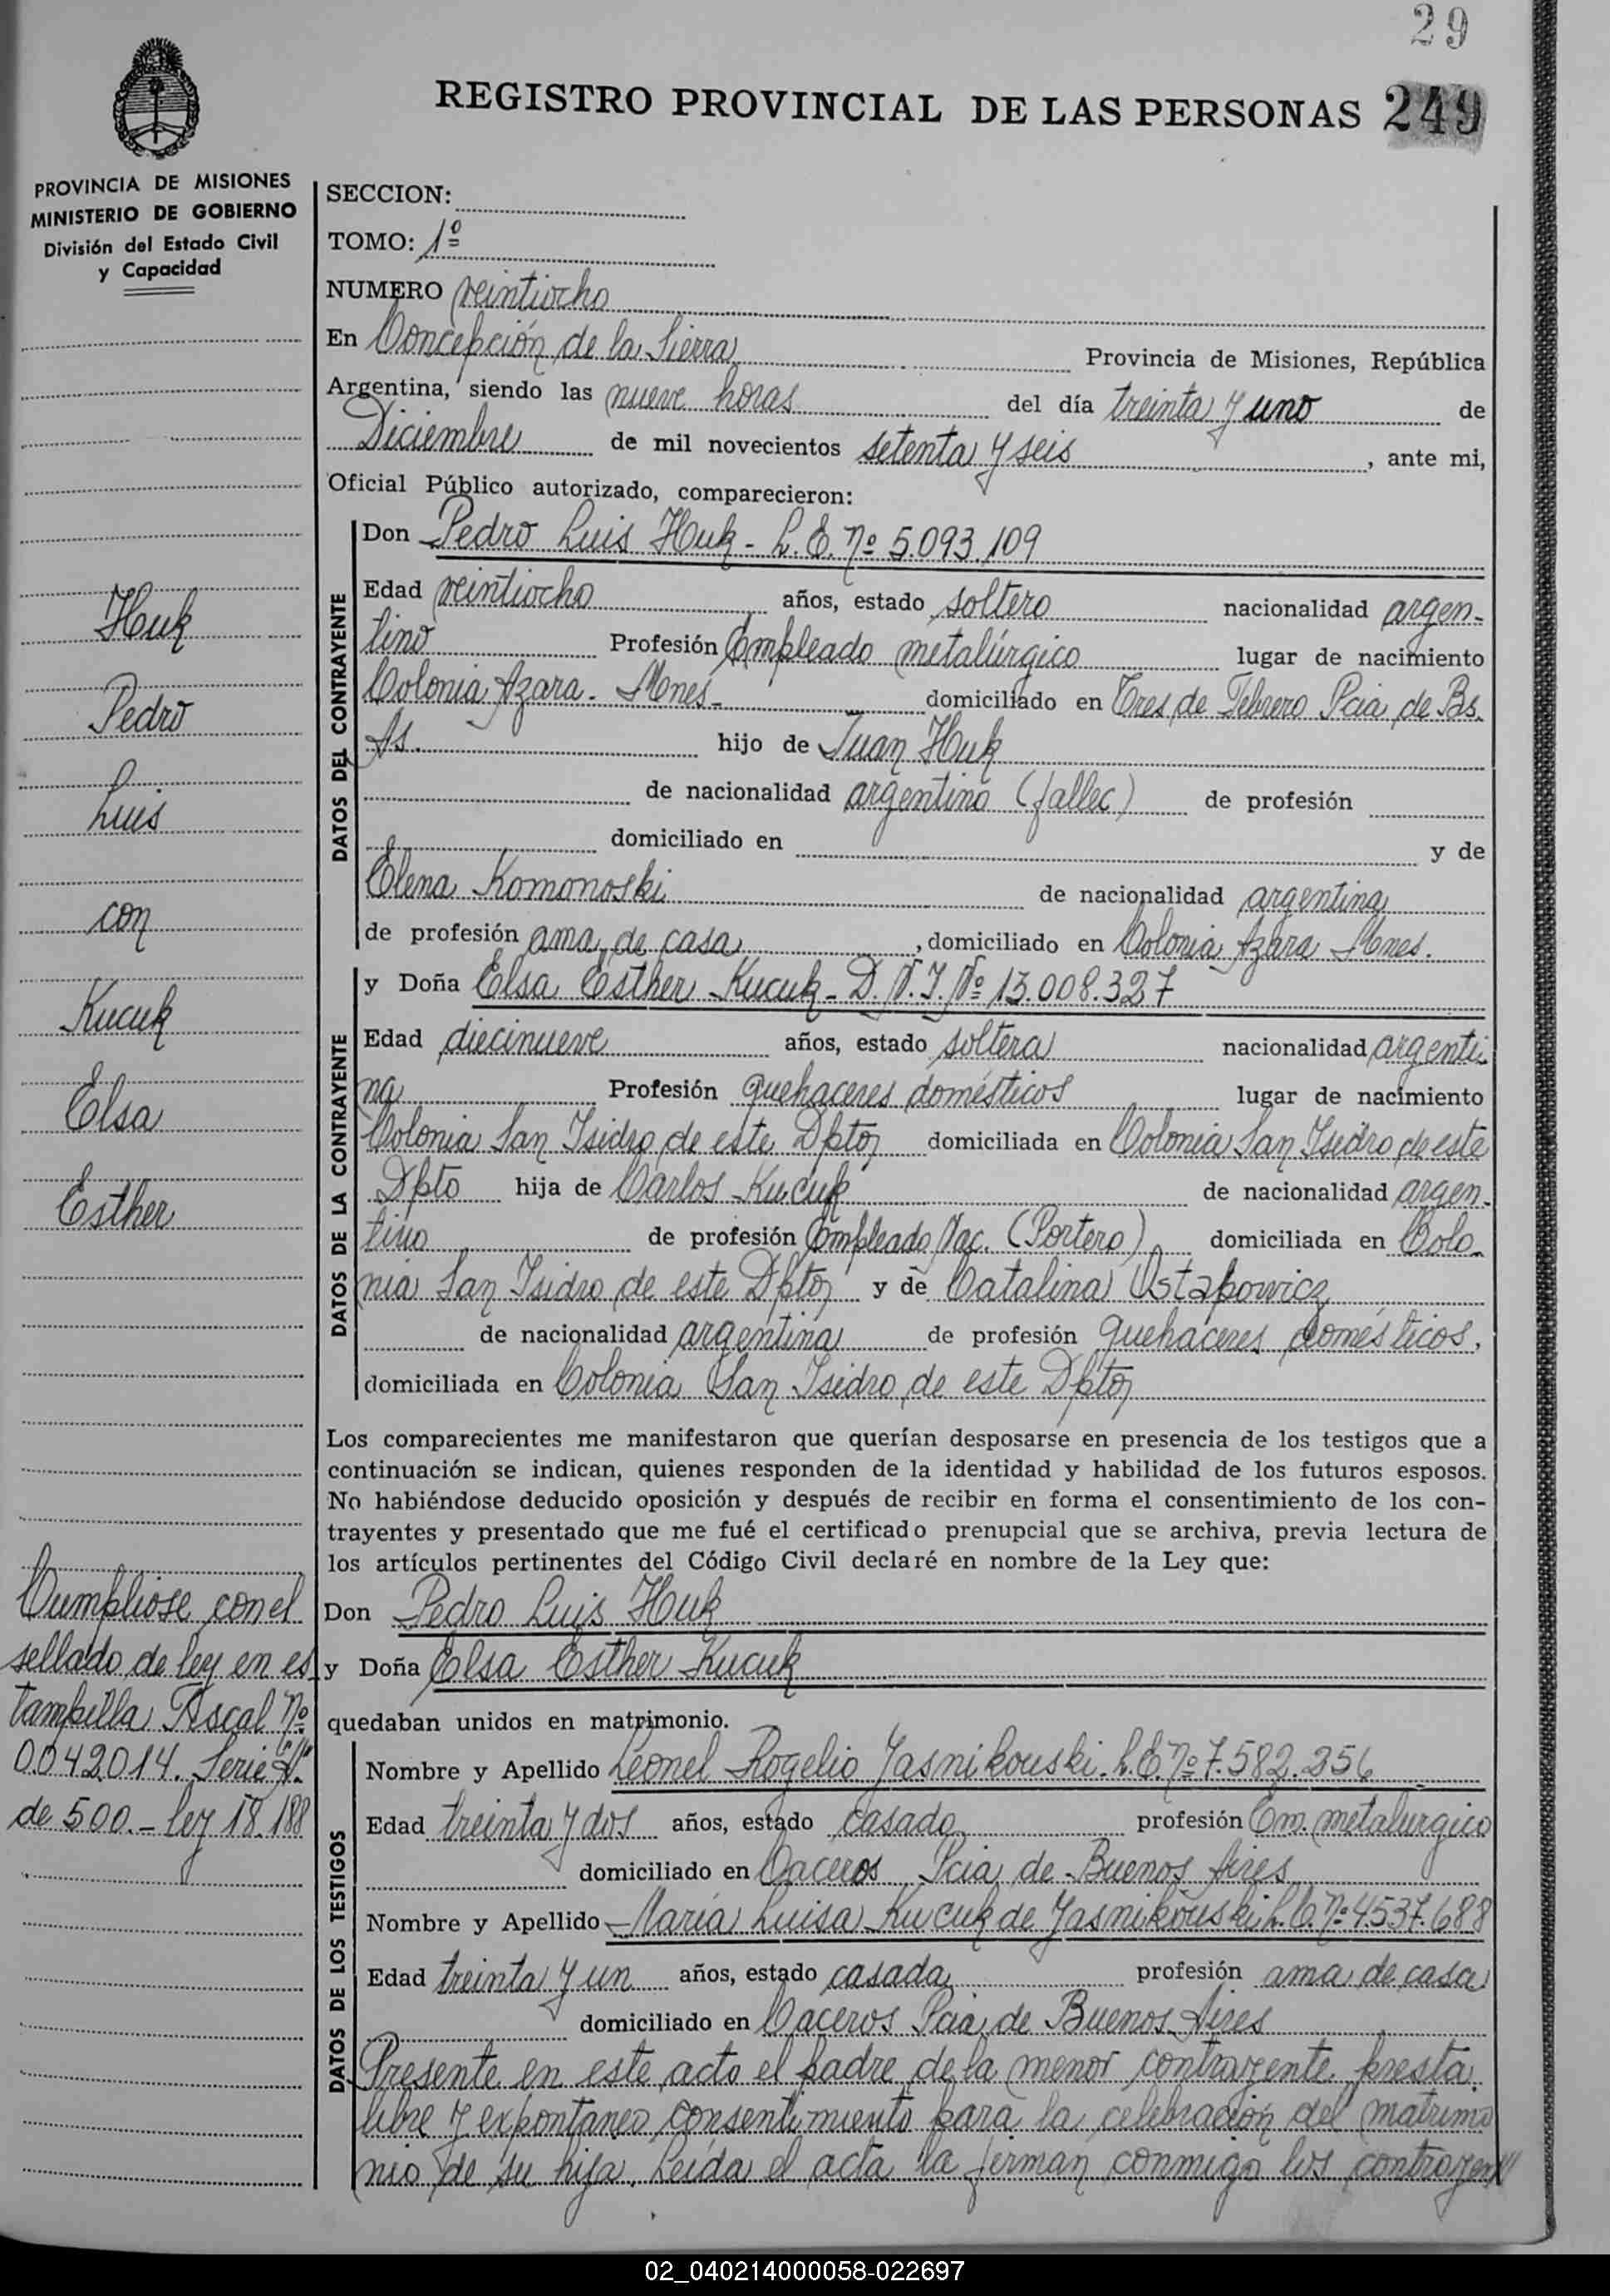 29
REGISTRO PROVINCIAL DE LAS PERSONAS 249
PROVINCIA DE MISIONES
MINISTERIO DE GOBIERNO
División del Estado Civil
y Capacidad
SECCION:
TOMO: 1º
NUMERO veintiocho
En Concepción de la Sierra Provincia de Misiones, República
Argentina, siendo las nueve horas del día treinta y uno de
Diciembre de mil novecientos setenta y seis, ante mi,
Oficial Público autorizado, comparecieron:
DATOS DEL CONTRAYENTE
Don Pedro Luis Huk - L.E. Nº 5.093.109
Edad veintiocho años, estado soltero nacionalidad argen-
tino Profesión Empleado metalúrgico lugar de nacimiento
Colonia Azara - Mnes - domiciliado en Tres de Febrero Pcia de Bs.
As. hijo de Juan Huk
de nacionalidad argentino (fallec) de profesión
domiciliado en y de
Elena Komonoski de nacionalidad argentina
de profesión ama de casa, domiciliado en Colonia Azara Mnes.
DATOS DE LA CONTRAYENTE
y Doña Elsa Esther Kucuk - D.N.I. Nº 13.008.327
Edad diecinueve años, estado soltera nacionalidad argenti-
na Profesión quehaceres domésticos lugar de nacimiento
Colonia San Isidro de este Dpto domiciliada en Colonia San Isidro de este
Dpto hija de Carlos Kucuk de nacionalidad argen-
tino de profesión Empleado Nac. (Portero) domiciliada en Colo-
nia San Isidro de este Dpto y de Catalina Ostapowicz
de nacionalidad argentina de profesión quehaceres domésticos,
domiciliada en Colonia San Isidro de este Dpto
Los comparecientes me manifestaron que querían desposarse en presencia de los testigos que a
continuación se indican, quienes responden de la identidad y habilidad de los futuros esposos.
No habiéndose deducido oposición y después de recibir en forma el consentimiento de los con-
trayentes y presentado que me fué el certificado prenupcial que se archiva, previa lectura de
los artículos pertinentes del Código Civil declaré en nombre de la Ley que:
Don Pedro Luis Huk
y Doña Elsa Esther Kucuk
quedaban unidos en matrimonio.
DATOS DE LOS TESTIGOS
Nombre y Apellido Leonel Rogelio Jasnikouski. L.E. Nº 7.582.356
Edad treinta y dos años, estado casado profesión Em. metalurgico
domiciliado en Caceros Pcia de Buenos Aires
Nombre y Apellido María Luisa Kucuk de Jasnikouski L.C. Nº 4.537.688
Edad treinta y un años, estado casada profesión ama de casa
domiciliado en Caceros Pcia de Buenos Aires
Presente en este acto el padre de la menor contrayente presta
libre y expontaneo consentimiento para la celebración del matrimo
nio de su hija. Leída el acta la firman conmigo los contrayen
Huk
Pedro
Luis
con
Kucuk
Elsa
Esther
Cumpliose con el
sellado de ley en es
tampilla Fiscal Nº
0042014. Serie "A"
de 500.- ley 18.188
02_040214000058-022697